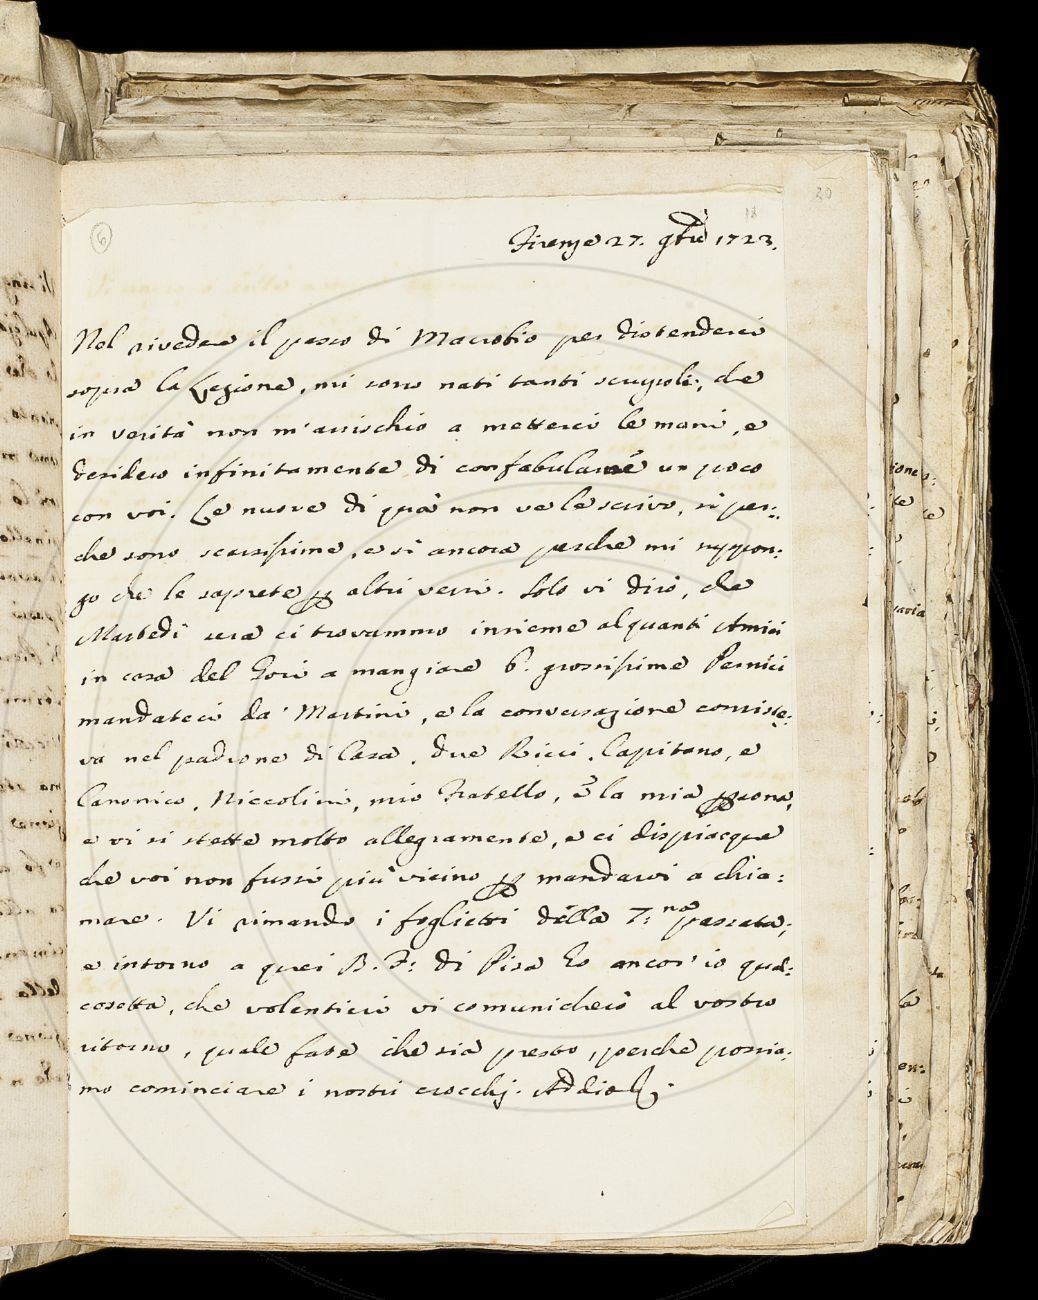 6
18
20
Firenze 27. 9bre 1723.
Nel rivedere il passo di Macrobio per distenderci
sopra la Lezione, mi sono nati tanti scrupoli, che
in verità non m'arrischio a metterci le mani, e
desidero infinitamente di confabularne un poco
con voi. Le nuove di quà non ve le scrivo, sì per:
che sono scarsissime, e sì ancora perche mi suppon:
go che le saprete p altri versi. Solo vi dirò, che
Martedì sera ci trovammo insieme alquanti Amici
in casa del Gori a mangiare 6. grossissime Pernici
mandateci da' Martini, e la conversazione consiste:
va nel padrone di Casa, due Ricci, Capitano, e
Canonico, Niccolini, mio Fratello, e la mia psona,
e vi si stette molto allegramente, e ci dispiacque
che voi non fussi più vicino p mandarvi a chia:
mare. Vi rimando i foglietti della 7:na passata;
e intorno a quei B. F: di Pisa ho ancor' io qual:
cosetta, che volentieri vi comunicherò al vostro
ritorno, quale fate che sia presto, perche possia:
mo cominciare i nostri crocchj. Addio